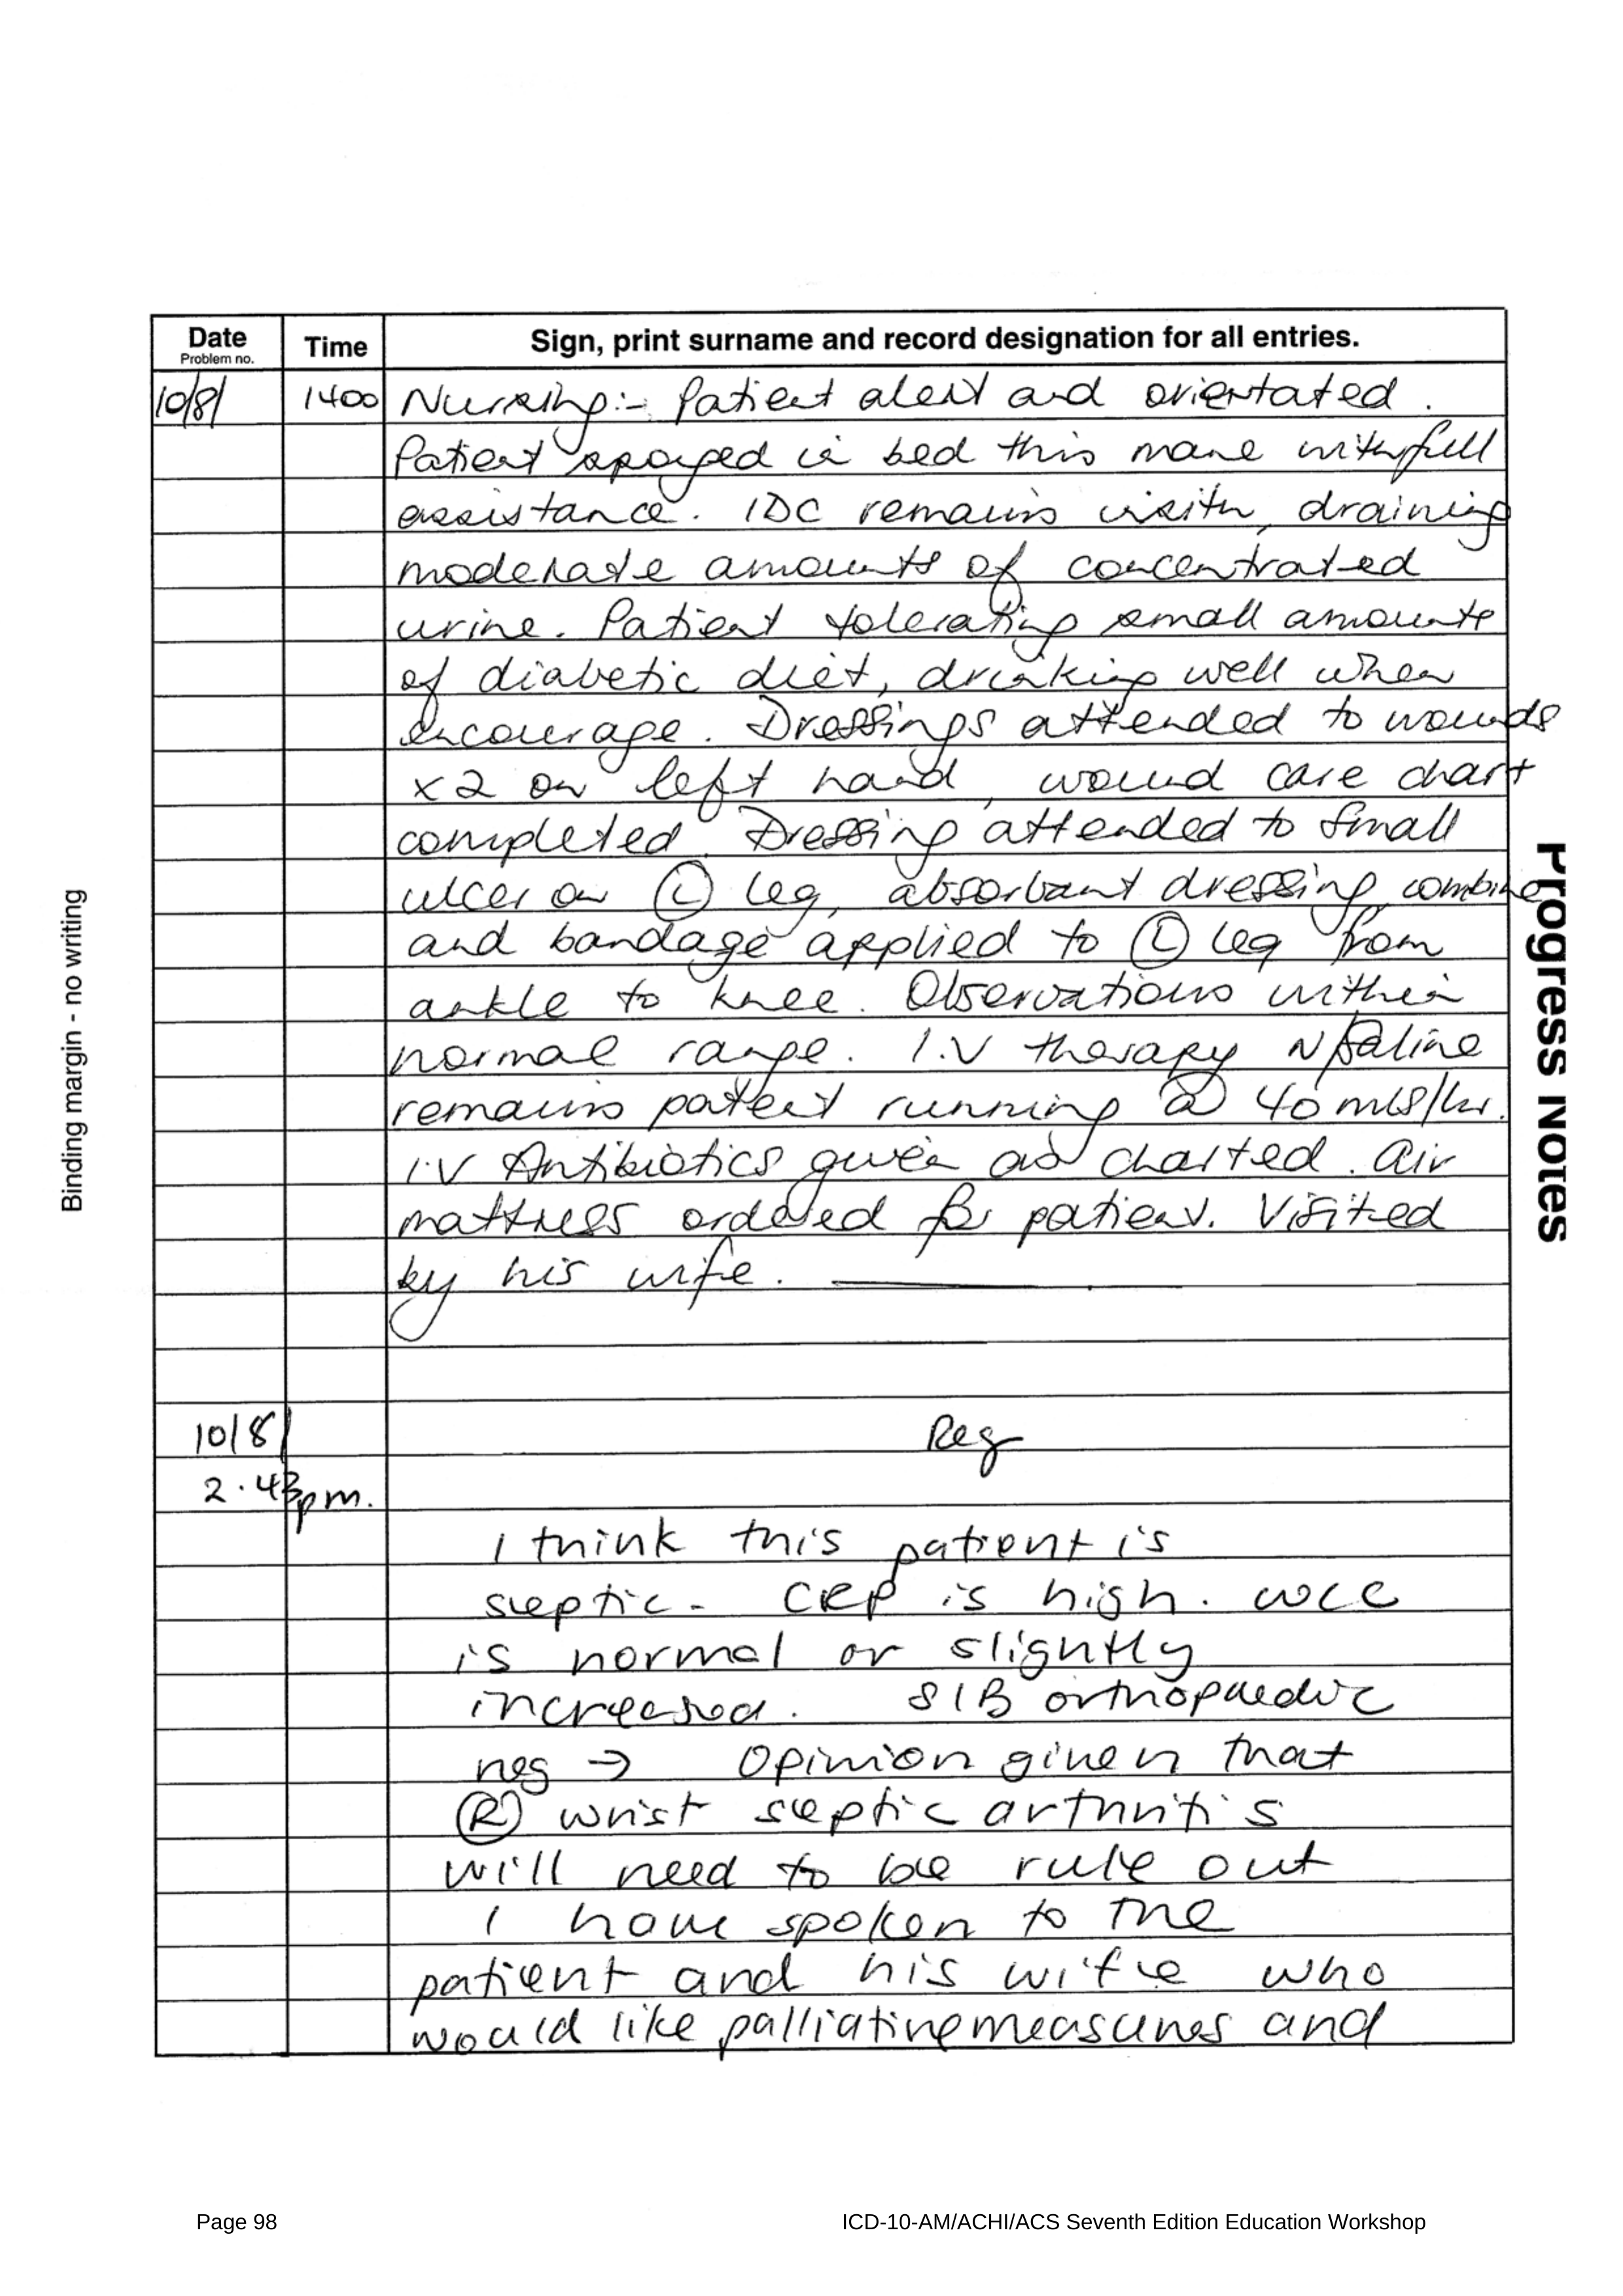 Date
Problem no.
Time
Sign, print surname and record designation for all entries.
10/8/ 1400 Nursing:- Patient alert and orientated.
Patient sponged in bed this mane with full
assistance. IDC remains insitu, draining
moderate amounts of concentrated
urine. Patient tolerating small amounts
of diabetic diet, drinking well when
encourage. Dressings attended to wounds
x2 on left hand, wound care chart
completed. Dressing attended to small
ulcer on Ⓛ leg, absorbant dressing, combine
and bandage applied to Ⓛ leg from
ankle to knee. Observations within
normal range. I.V therapy N/Saline
remains patent running @ 40mls/hr.
I.V Antibiotics given as charted. Air
mattress ordered for patient. Visited
by his wife.
10/8/ Reg
2.43pm.
I think this patient is
septic - CRP is high. WCC
is normal or slightly
increased. S/B orthopaedic
reg → Opinion given that
Ⓡ wrist septic arthritis
will need to be rule out
I have spoken to the
patient and his wife who
would like palliative measures and
Binding margin - no writing
Progress Notes
Page 98
ICD-10-AM/ACHI/ACS Seventh Edition Education Workshop